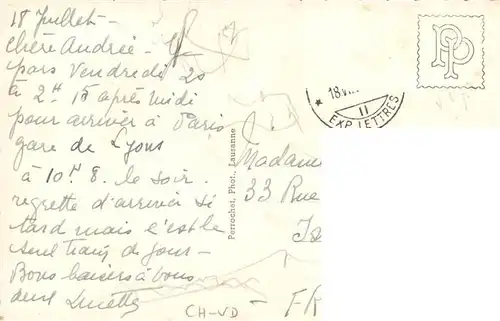 18 Juillet-
Chère Andrée - Je
pars Vendredi 20
à 2H 15 après midi
pour arriver à Paris
gare de Lyons
à 10H 8. le soir.
regrette d'arriver si
tard mais c'est le
seul train de jour-
Bons baisers à vous
deux Lucette
Perrochet, Phot., Lausanne
PP
18.VII
11
EXP. LETTRES
Madame
33 Rue
FR
CH-VD